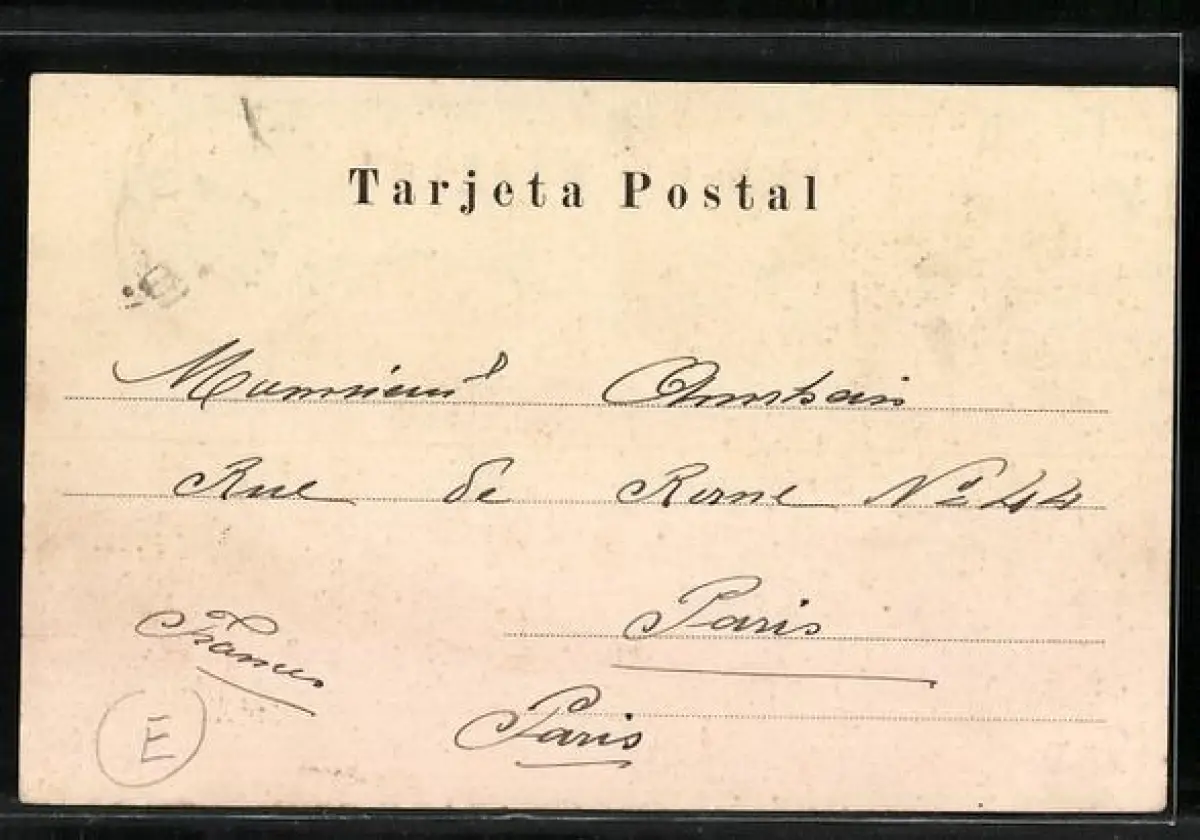 Tarjeta Postal
Monsieur
Rue de Rome No 44
Paris
France
Paris
E